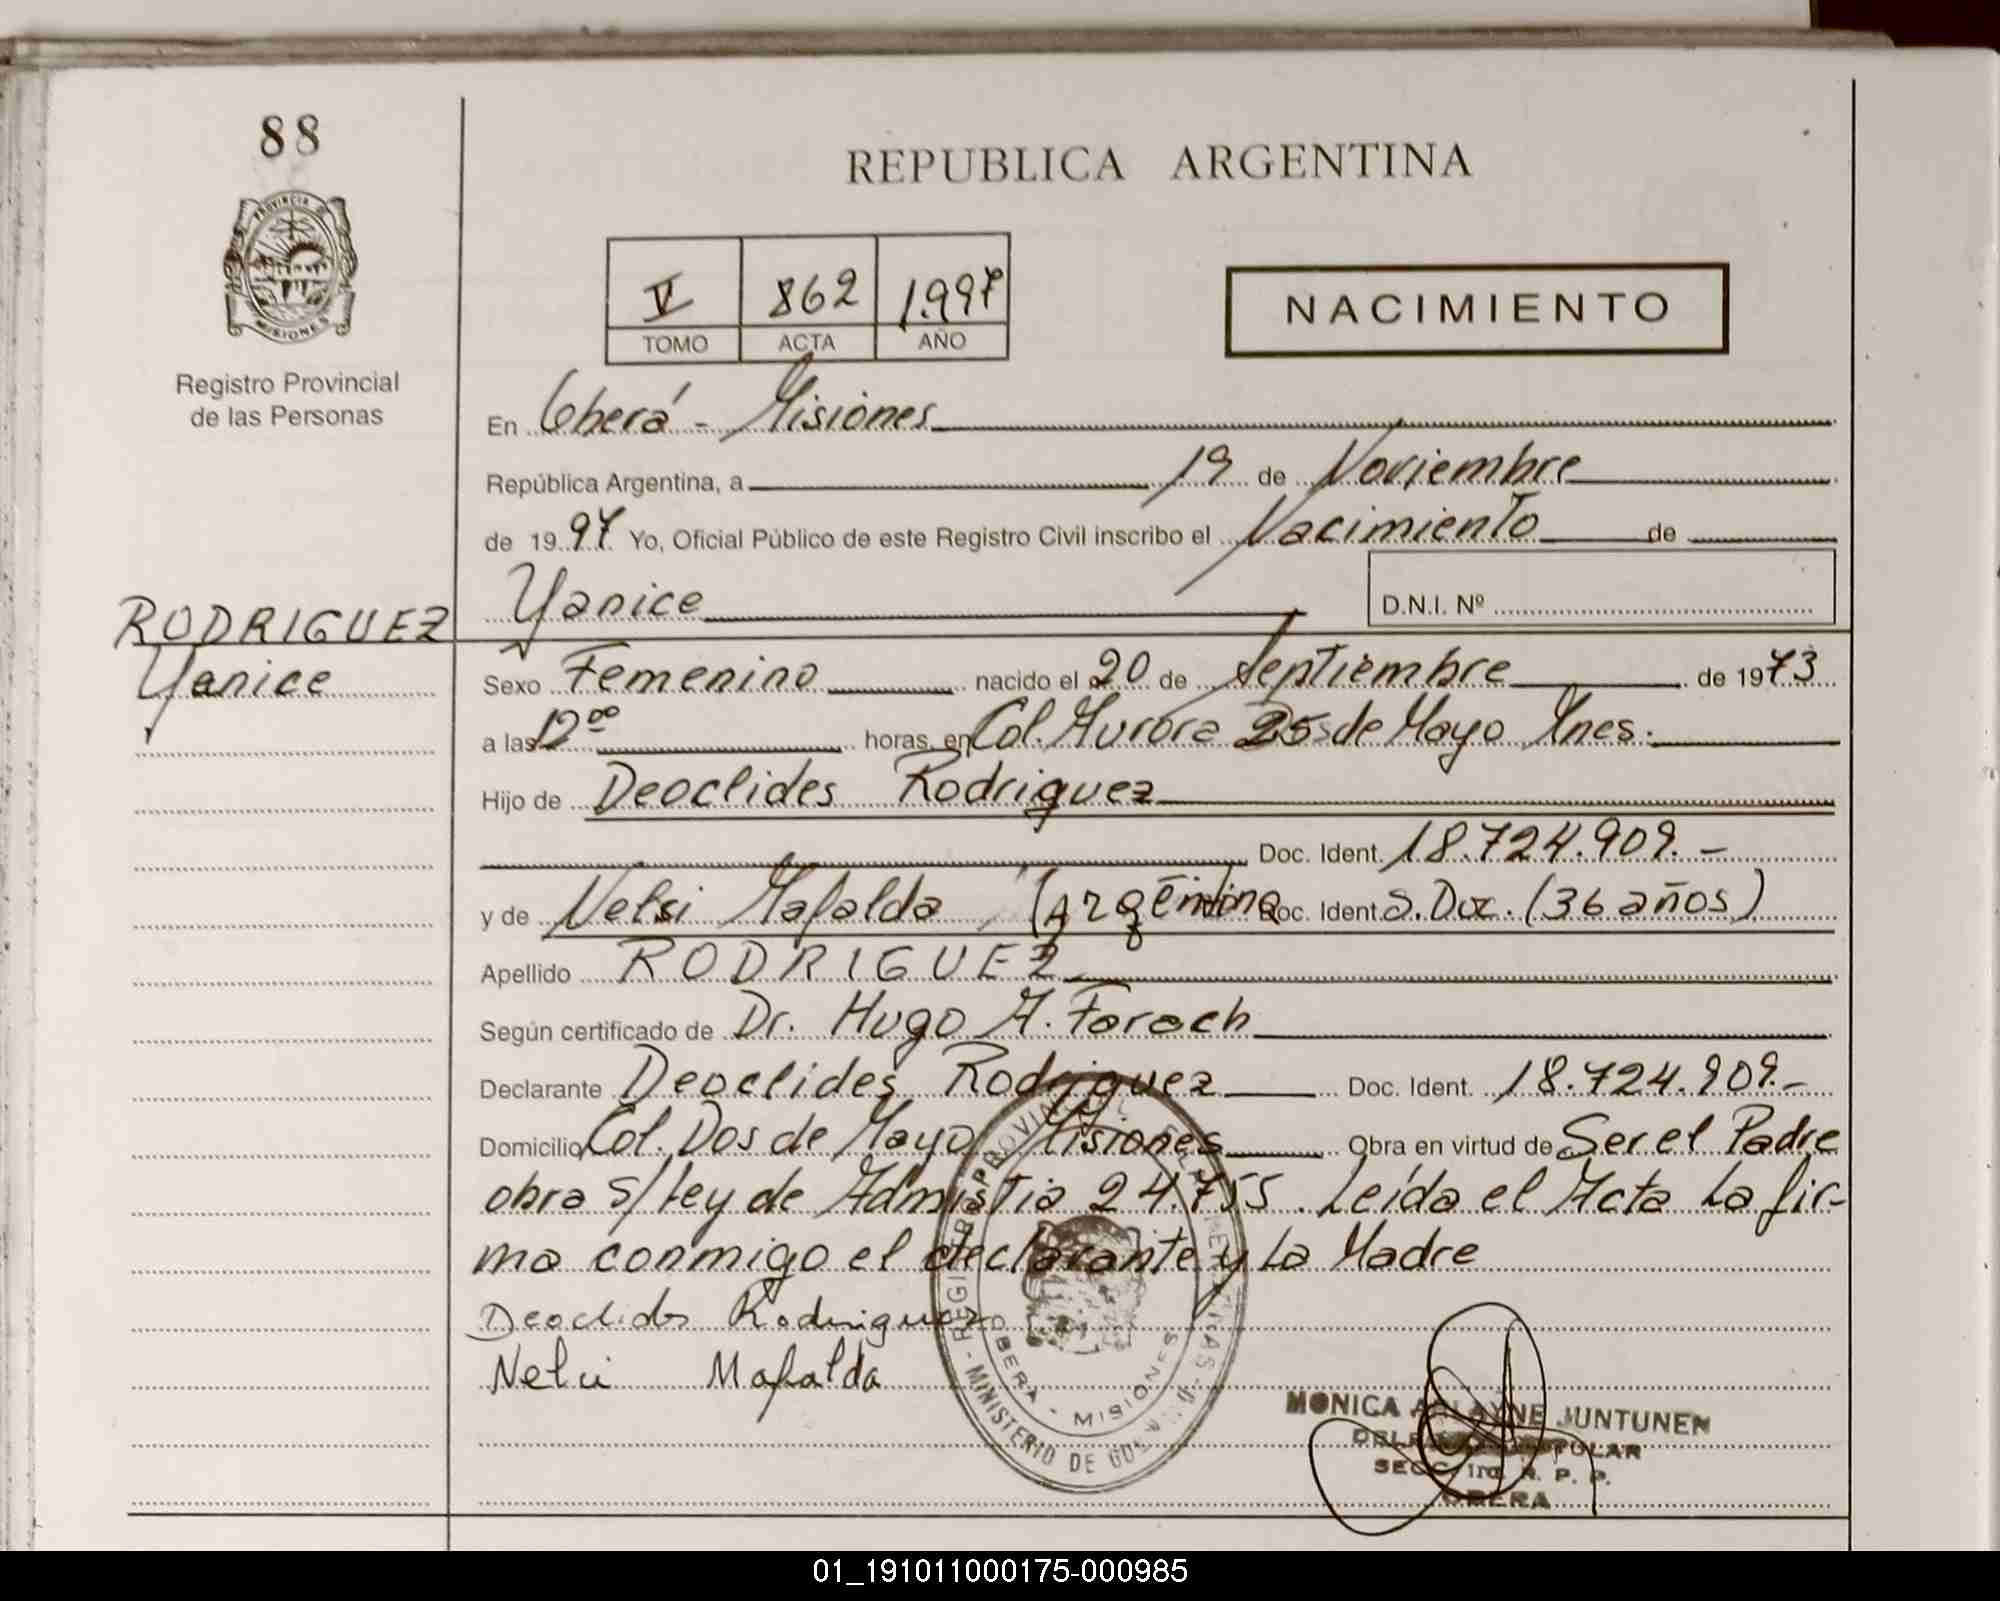 88
REPUBLICA ARGENTINA
PROVINCIA DE
MISIONES
Registro Provincial
de las Personas
V 862 1.997
TOMO ACTA AÑO
NACIMIENTO
En Oberá - Misiones
República Argentina, a 19 de Noviembre
de 19 97 Yo, Oficial Público de este Registro Civil inscribo el Nacimiento de
Yanice D.N.I. Nº
RODRIGUEZ
Yanice
Sexo Femenino nacido el 20 de Septiembre de 1973
a las 12 00 horas, en Col. Aurora 25 de Mayo Mnes.
Hijo de Deoclides Rodriguez
Doc. Ident. 18.724.909.-
y de Nelsi Mafalda (Argentina Doc. Ident S. Doc. (36 años)
Apellido RODRIGUEZ
Según certificado de Dr. Hugo A. Farach
Declarante Deoclides Rodriguez Doc. Ident. 18.724.909.-
Domicilio Col. Dos de Mayo Misiones Obra en virtud de Ser el Padre
obra s/ Ley de 24.755. Leída el Acta La fir-
ma conmigo el declarante y La Madre
Deoclides Rodriguez
Nelsi Mafalda
OBERA - MISIONES
MINISTERIO DE
MONICA JUNTUNEN
TITULAR
SECC. 1ra. R. P. P.
OBERA
01_191011000175-000985